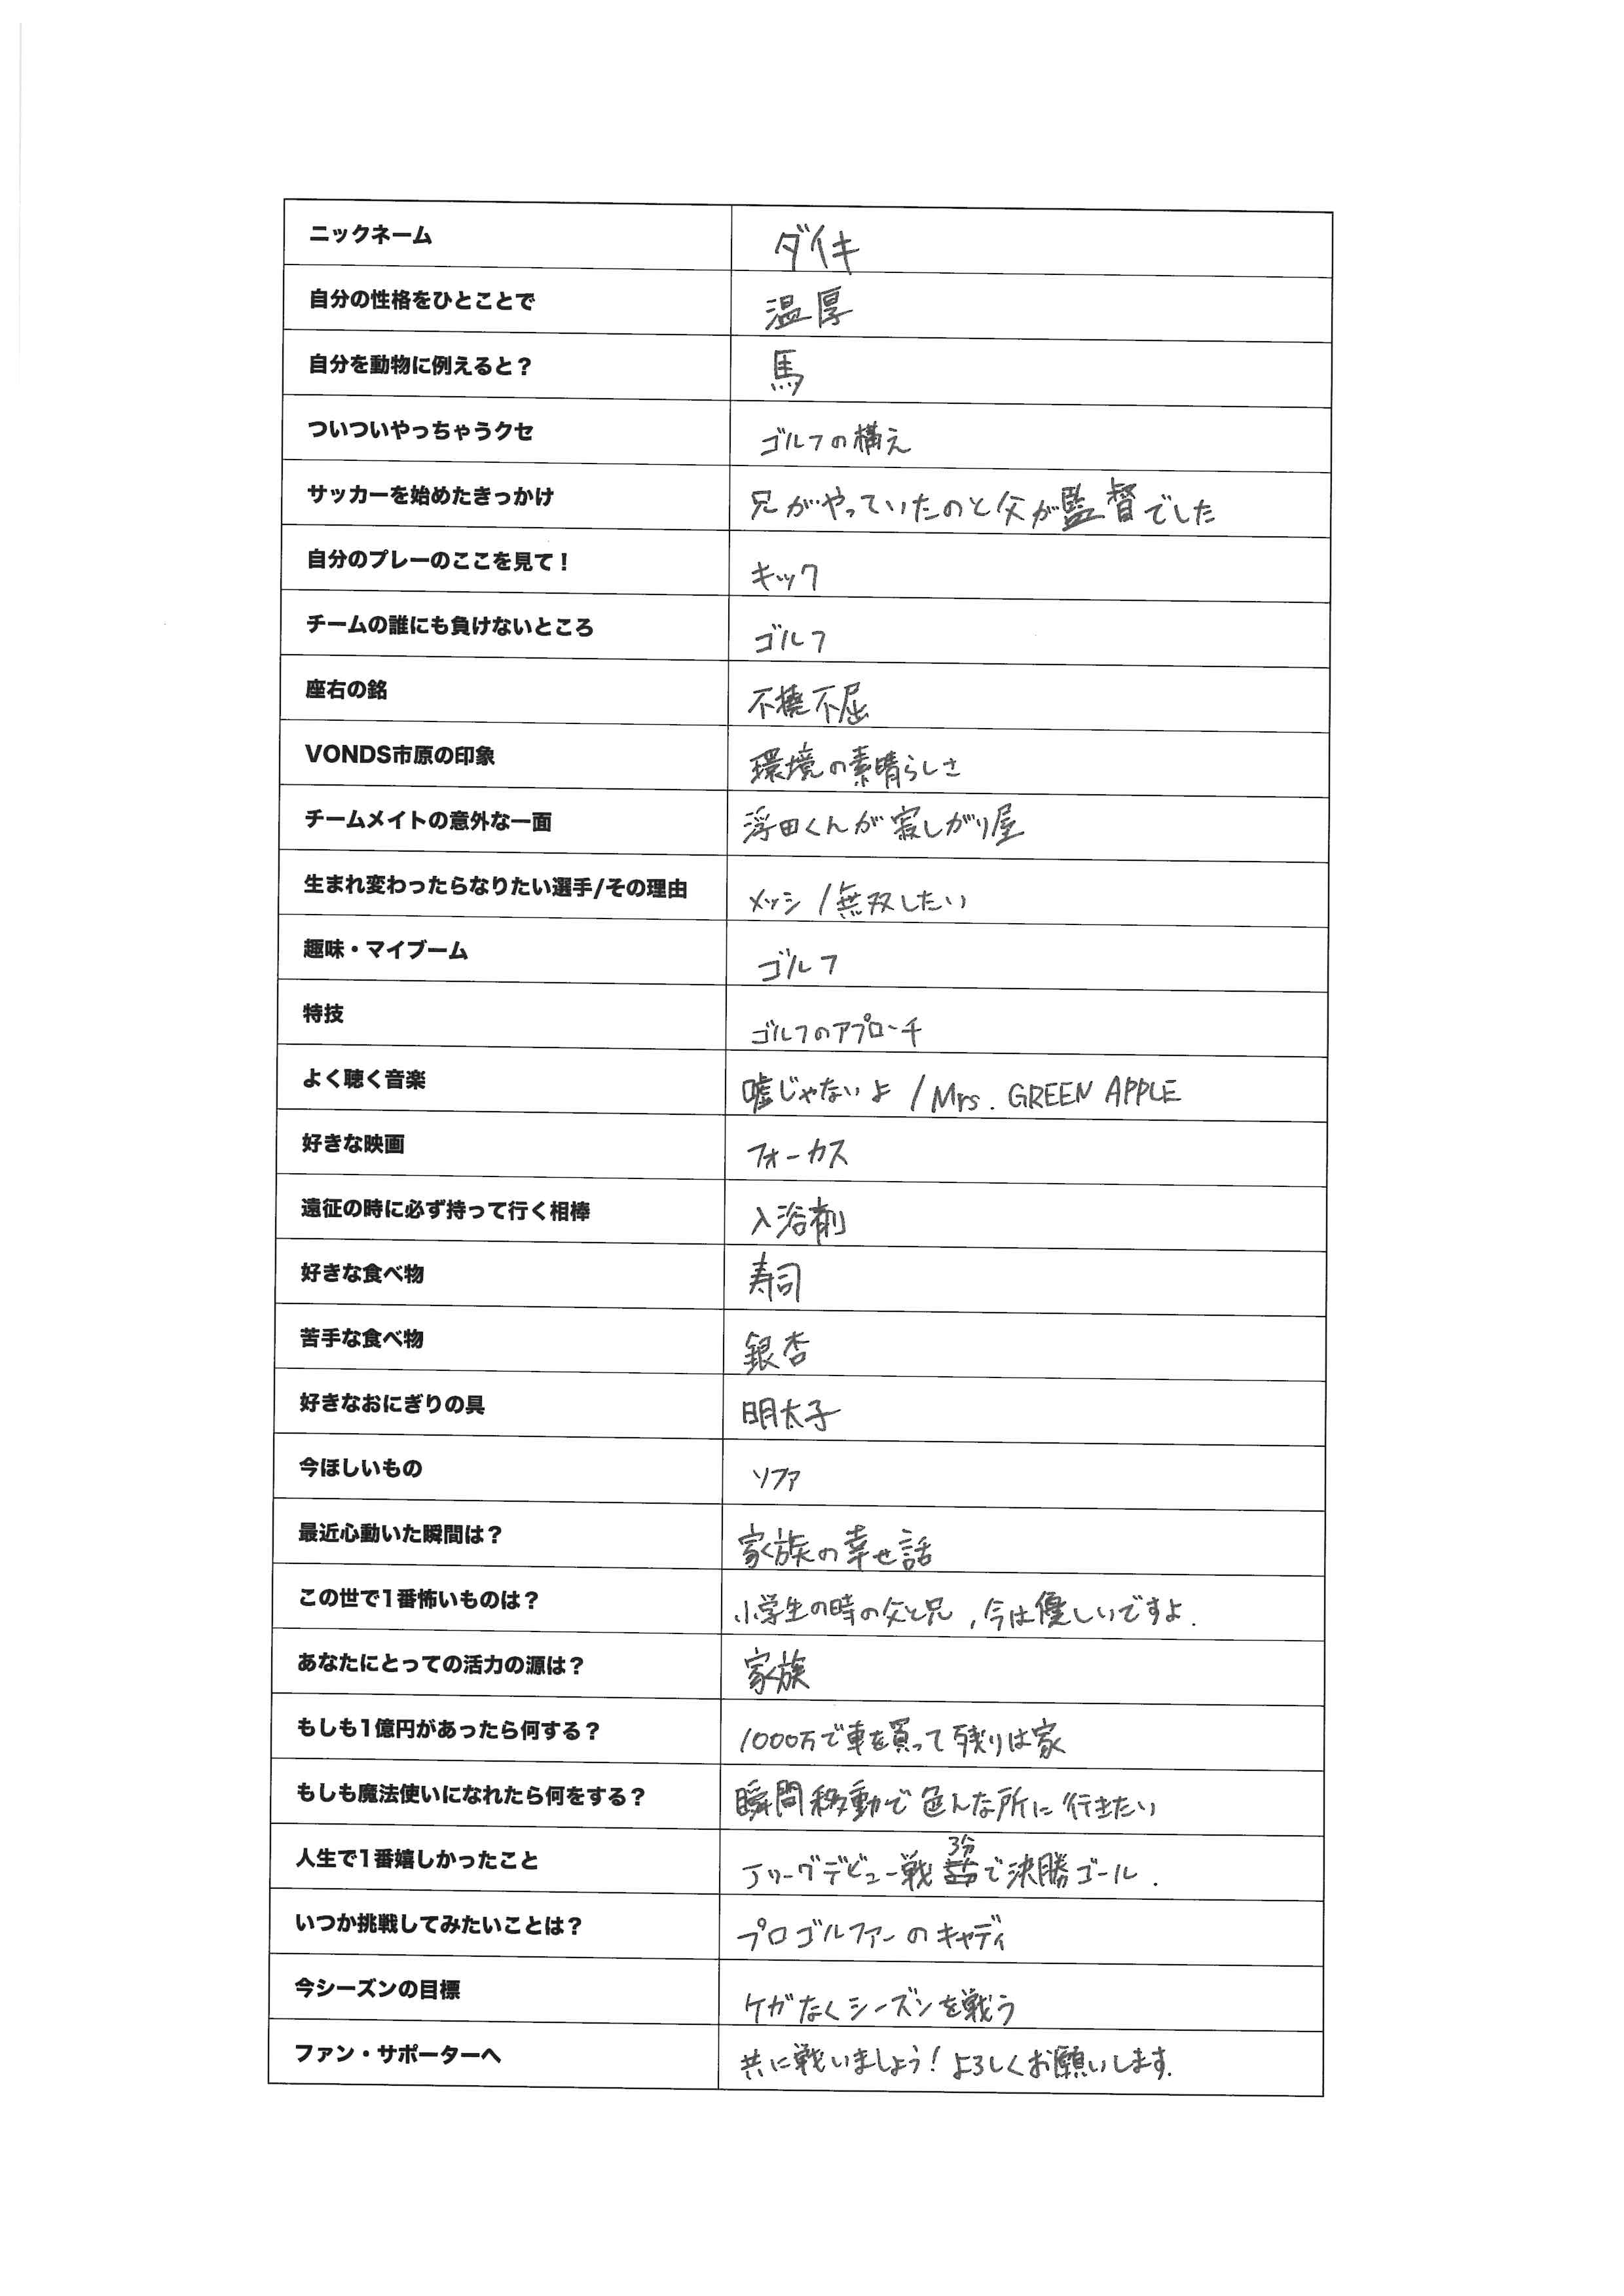 ニックネーム ダイキ
自分の性格をひとことで 温厚
自分を動物に例えると？ 馬
ついついやっちゃうクセ ゴルフの構え
サッカーを始めたきっかけ 兄がやっていたのと父が監督でした
自分のプレーのここを見て！ キック
チームの誰にも負けないところ ゴルフ
座右の銘 不撓不屈
VONDS市原の印象 環境の素晴らしさ
チームメイトの意外な一面 浮田くんが寂しがり屋
生まれ変わったらなりたい選手/その理由 メッシ/無双したい
趣味・マイブーム ゴルフ
特技 ゴルフのアプローチ
よく聴く音楽 嘘じゃないよ/Mrs. GREEN APPLE
好きな映画 フォーカス
遠征の時に必ず持って行く相棒 入浴剤
好きな食べ物 寿司
苦手な食べ物 銀杏
好きなおにぎりの具 明太子
今ほしいもの ソファ
最近心動いた瞬間は？ 家族の幸せ話
この世で1番怖いものは？ 小学生の時の父と兄,今は優しいですよ.
あなたにとっての活力の源は？ 家族
もしも1億円があったら何する？ 1000万で車を買って残りは家
もしも魔法使いになれたら何をする？ 瞬間移動で色んな所に行きたい
人生で1番嬉しかったこと Jリーグデビュー戦3分で決勝ゴール.
いつか挑戦してみたいことは？ プロゴルファーのキャディ
今シーズンの目標 ケガなくシーズンを戦う
ファン・サポーターへ 共に戦いましょう!よろしくお願いします.